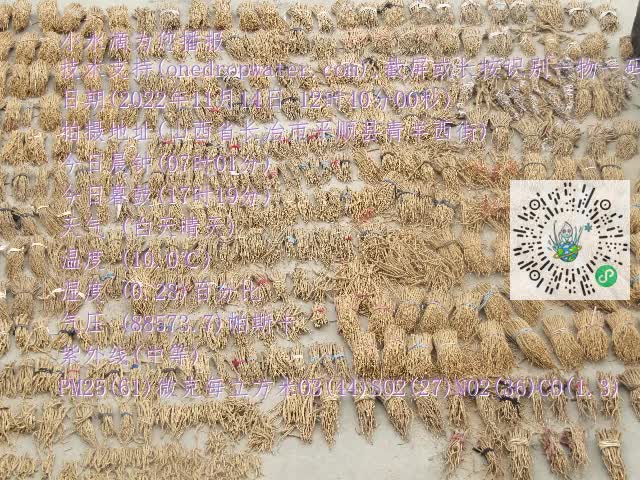 小水滴为您播报
技术支持(onedropwater.com) 截屏或长按识别一物一码
日期(2022年11月14日 12时10分00秒)
拍摄地址(山西省长治市平顺县青羊西街)
今日晨钟(07时01分)
今日暮鼓(17时19分)
天气 (白天晴天)
温度 (10.0℃)
湿度 (0.28)百分比
气压 (88573.7)帕斯卡
紫外线(中等)
PM25(61)微克每立方米O3(44)SO2(27)NO2(36)CO(1.3)